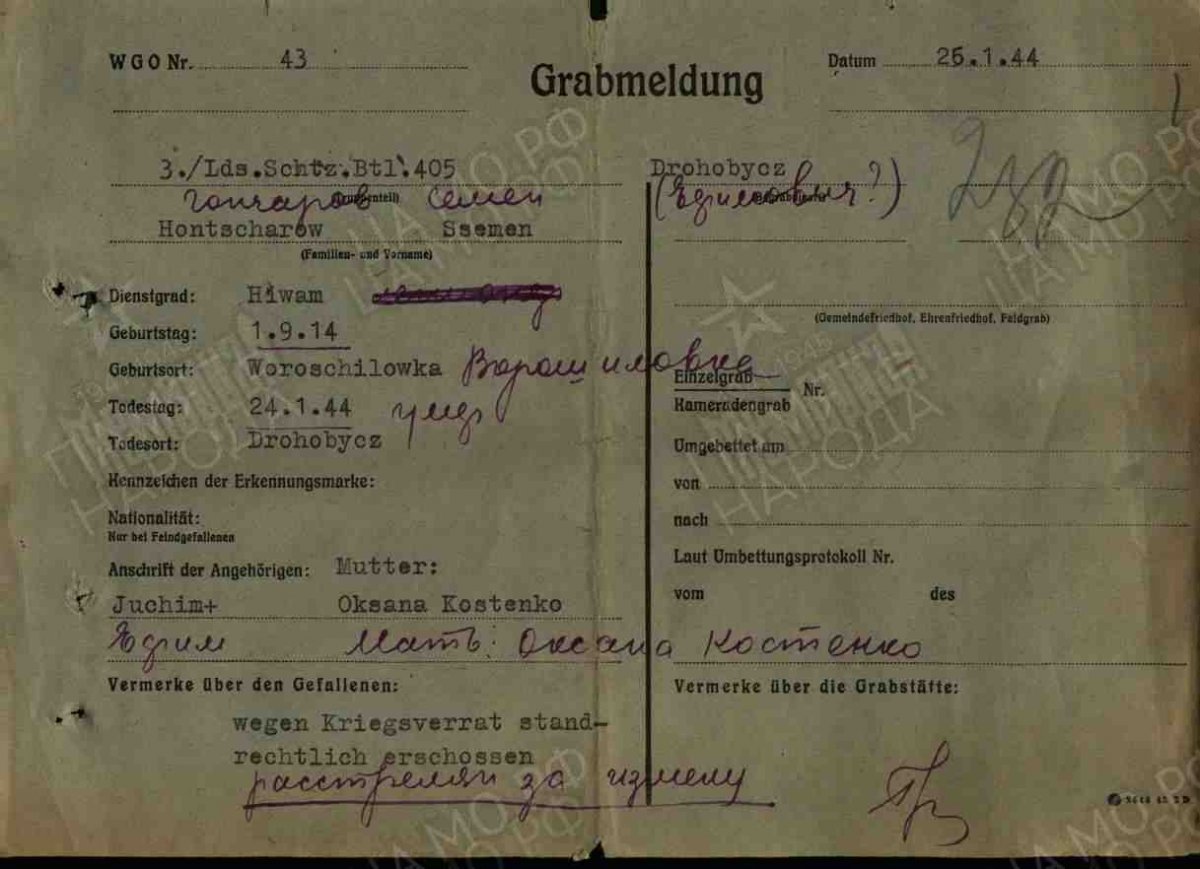 WGO Nr. 43
Datum 25.1.44
Grabmeldung
3./Lds.Schtz.Btl.405
Drohobycz
гончаров семен
(Ефимович?)
Hontscharow Ssemen
(Familien- und Vorname)
Dienstgrad: Hiwam
(Gemeindefriedhof, Ehrenfriedhof, Feldgrab)
Geburtstag: 1.9.14
Geburtsort: Woroschilowka Ворошиловка
Einzelgrab
Kameradengrab Nr.
Todestag: 24.1.44
Todesort: Drohobycz
Umgebettet am
Kennzeichen der Erkennungsmarke:
von
Nationalität:
Nur bei Feindgefallenen
nach
Anschrift der Angehörigen: Mutter:
Laut Umbettungsprotokoll Nr.
vom des
Juchim+ Oksana Kostenko
Ефим Мать: Оксана Костенко
Vermerke über den Gefallenen:
Vermerke über die Grabstätte:
wegen Kriegsverrat stand-
rechtlich erschossen
расстрелян за измену
ПАМЯТЬ НАРОДА
ЦА МО РФ